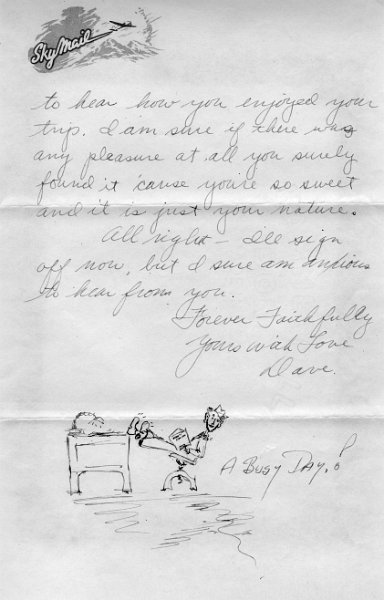 Sky Mail
to hear how you enjoyed your
trip. I am sure if there was
any pleasure at all you surely
found it 'cause you're so sweet
and it is just your nature.
All right – I'll sign
off now, but I sure am anxious
to hear from you.
Forever Faithfully
Yours with Love
Dave.
A Busy Day!